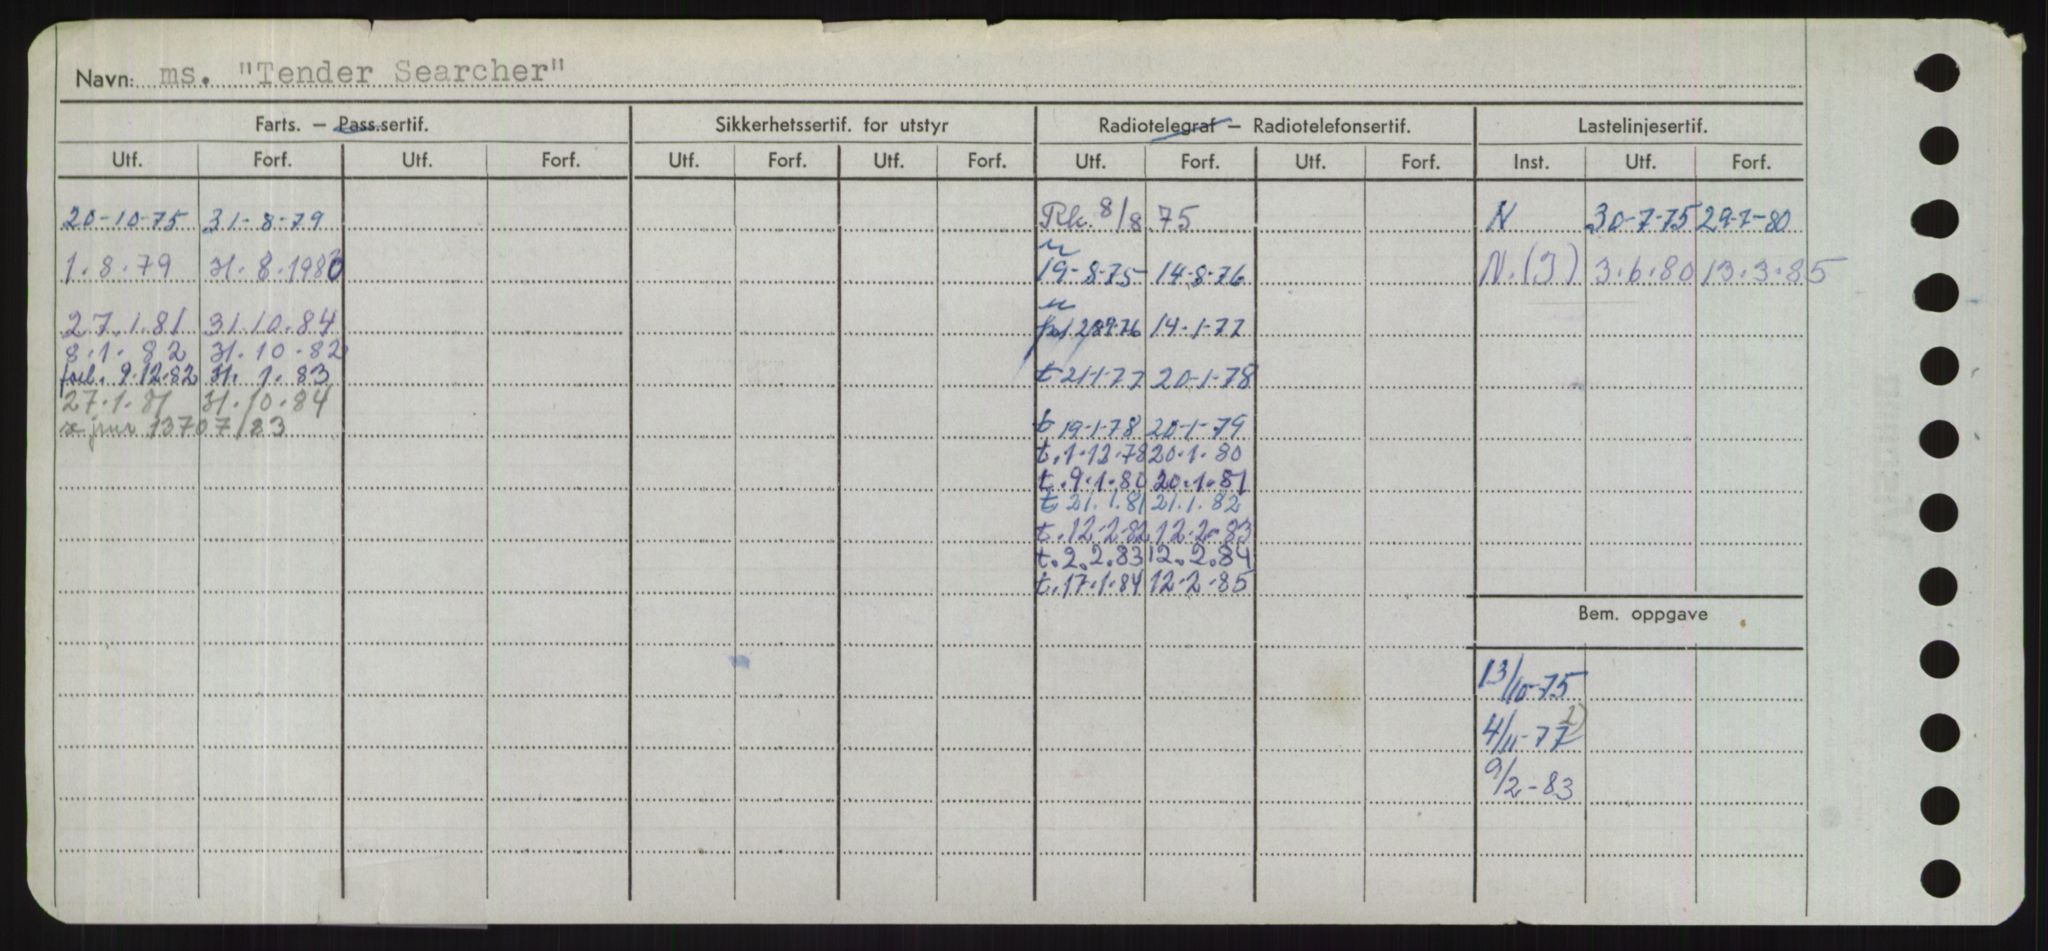 Navn: ms. "Tender Searcher"
Farts. — Pass.sertif. Sikkerhetssertif. for utstyr Radiotelegraf — Radiotelefonsertif. Lastelinjesertif.
Utf. Forf. Utf. Forf. Utf. Forf. Utf. Forf. Utf. Forf. Utf. Forf. Inst. Utf. Forf.
20-10-75 31-8-79 Rk. 8/8 75 N 30-7-75 29-7-80
1.8.79 31.8.1980 19-8-75 14-8-76 N.(J) 3.6.80 13.3.85
27.1.81 31.10.84 14-1-77
8.1.82 31.10.82
9.12.82 31.1.83 t 21-1-77 20-1-78
27.1.81 31.10.84
jnr 13707/83 t 19-1-78 20-1-79
t.1.12.78 20.1.80
t.9.1.80 20.1.81
t 21.1.81 21.1.82
t.12.2.82 12.2.83
t.2.2.83 12.2.84
t.17.1.84 12.2.85
Bem. oppgave
13/10-75
4/11-77 1)
9/2-83